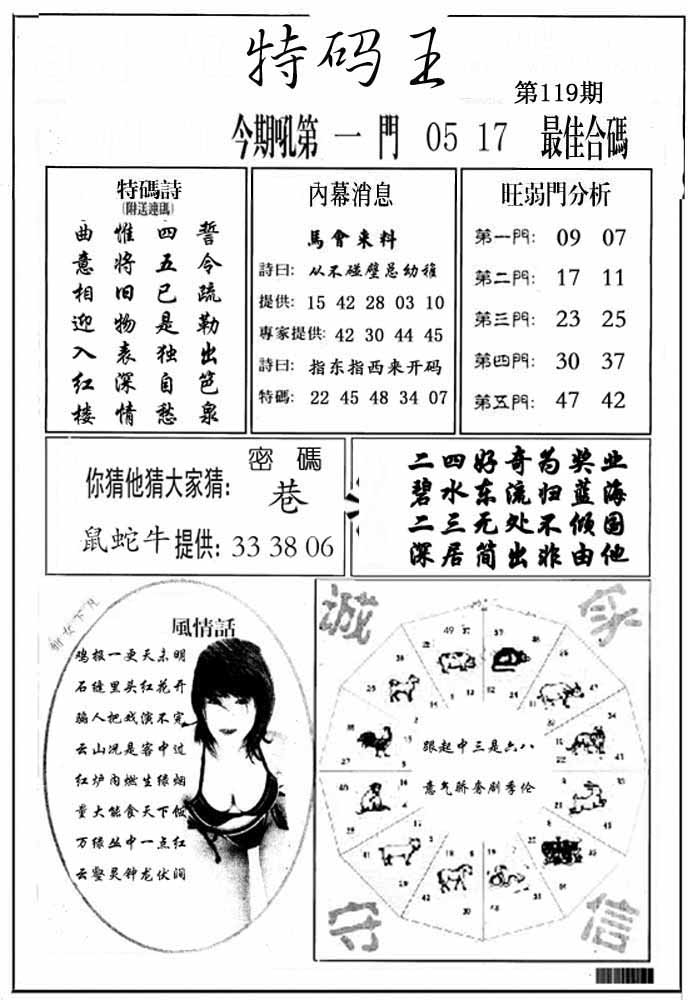 特码王
第119期
今期吼第一門 05 17 最佳合碼
特碼詩
(附送連碼)
曲 惟 四 誓
意 将 五 令
相 旧 已 疏
迎 物 是 勒
入 表 独 出
红 深 自 笆
楼 情 愁 泉
內幕消息
馬會来料
詩曰: 从不碰壁忌幼稚
提供: 15 42 28 03 10
專家提供: 42 30 44 45
詩曰: 指东指西来开码
特碼: 22 45 48 34 07
旺弱門分析
第一門: 09 07
第二門: 17 11
第三門: 23 25
第四門: 30 37
第五門: 47 42
密碼
你猜他猜大家猜: 巷
鼠蛇牛提供: 33 38 06
二四好奇为奖业
碧水东流归蓝海
二三无处不倾国
深居简出非由他
女下凡
風情話
鸡报一更天未明
石缝里头红花开
骗人把戏演不完
云山况是客中过
红炉内燃生绿烟
量大能食天下倾
万绿丛中一点红
云壑灵钟龙伏涧
诚
守
信
跟起中三是六八
意气骄奢剧季伦
49 37